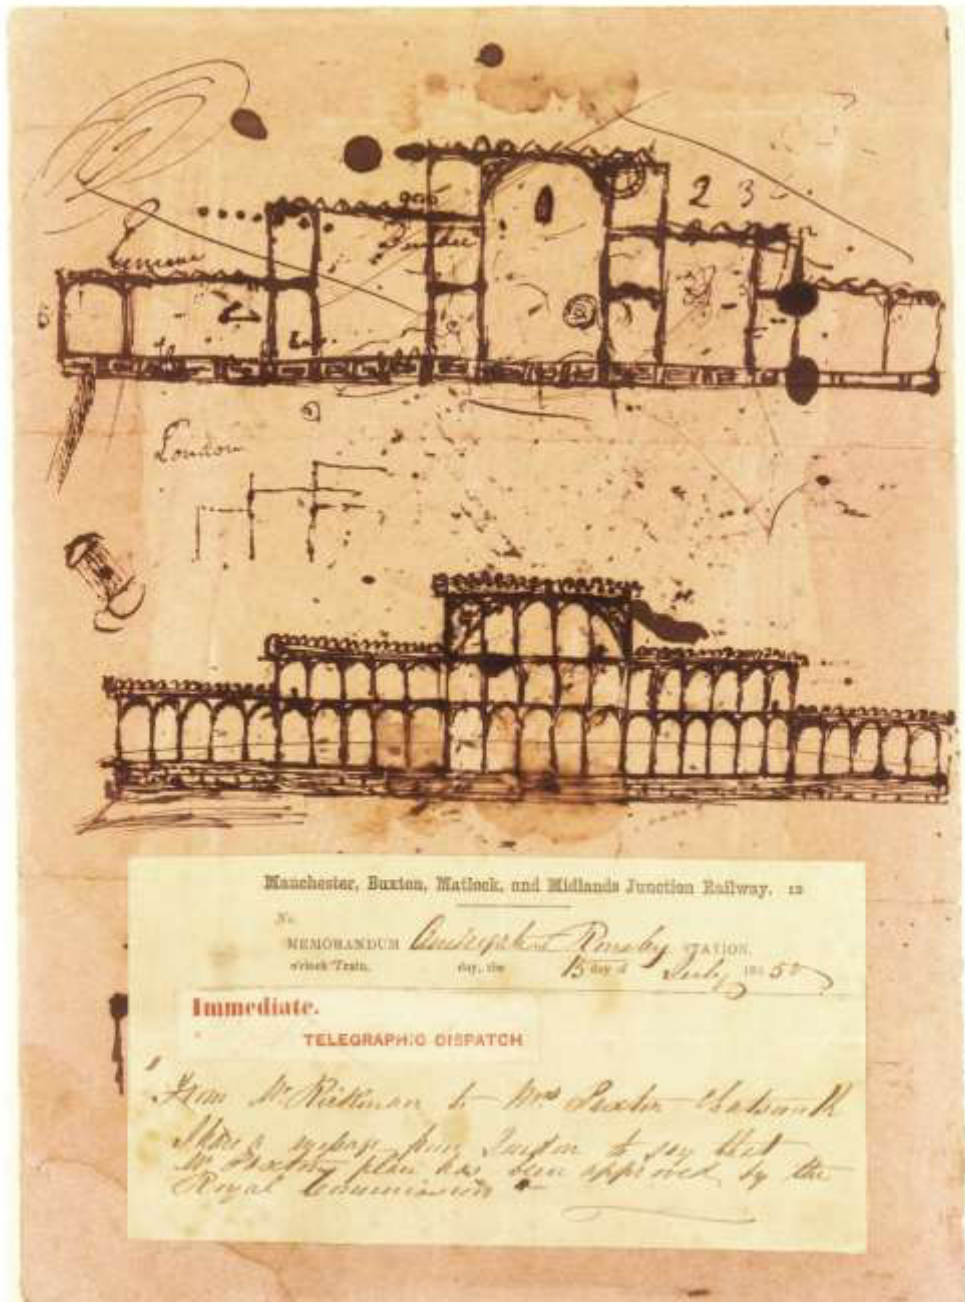 2 3
London
Manchester, Buxton, Matlock, and Midlands Junction Railway.
No.
MEMORANDUM Rowsley STATION.
o'clock Train. day, the 15 day of July 1850
Immediate.
TELEGRAPHIC DISPATCH
From Mr Rickman to Mrs Paxton Chatsworth
I have a message from London to say that
Mr Paxtons plan has been approved by the
Royal Commission